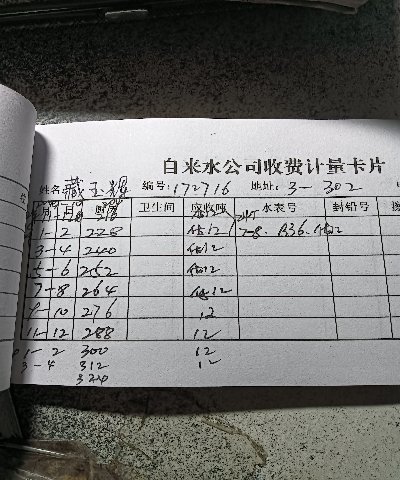 自来水公司收费计量卡片
姓名 藏玉耀 编号:172716 地址:3-302
卫生间 应收吨 水表号 封铅号
1-2 228 估12 7-8. 836. 估12
3-4 240 估12
5-6 252 估12
7-8 264 估12
9-10 276 12
11-12 288 12
1-2 300 12
3-4 312 12
324